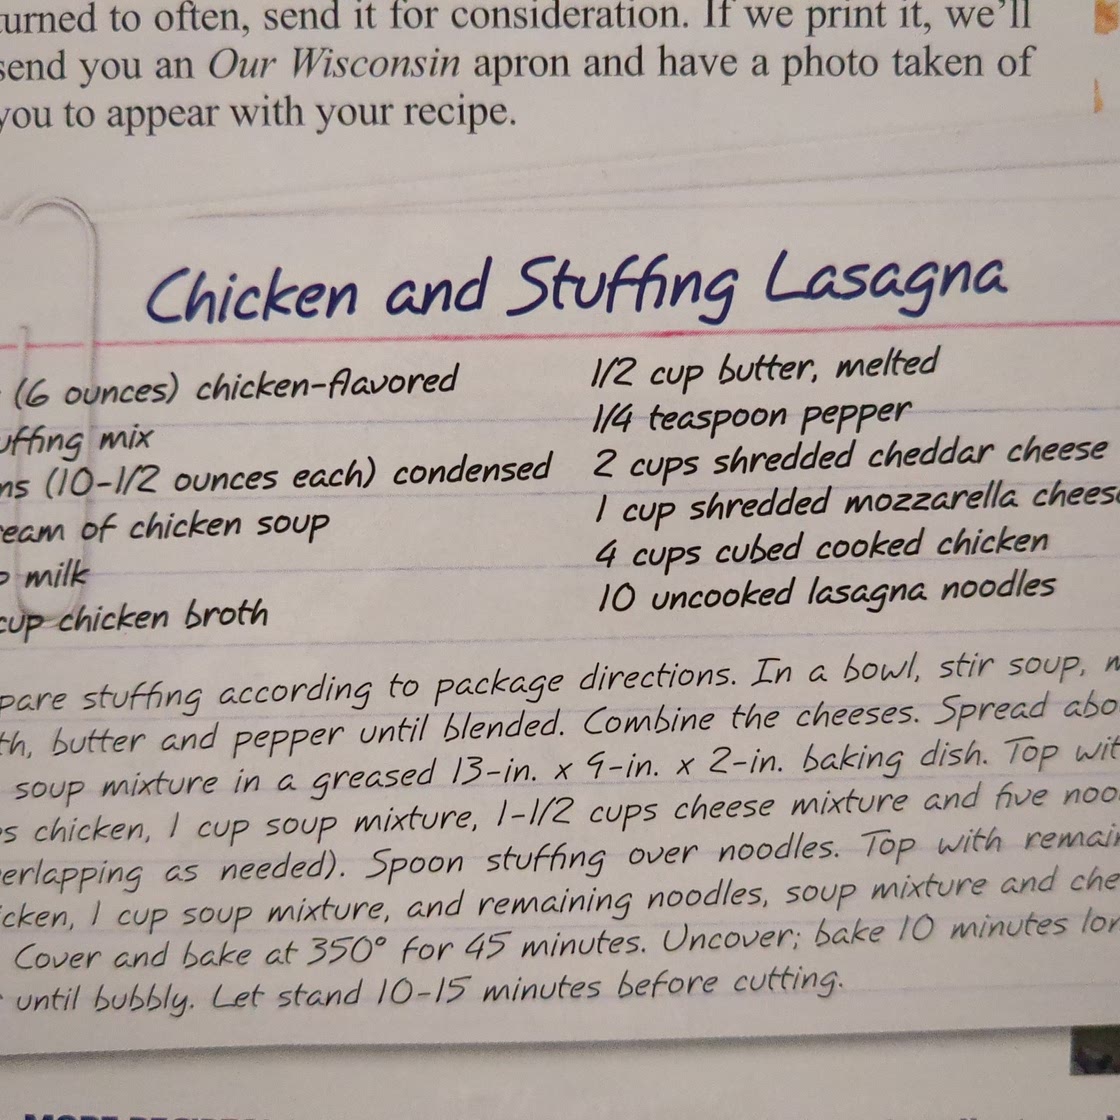 turned to often, send it for consideration. If we print it, we'll
send you an Our Wisconsin apron and have a photo taken of
you to appear with your recipe.
Chicken and Stuffing Lasagna
(6 ounces) chicken-flavored
uffing mix
ns (10-1/2 ounces each) condensed
ream of chicken soup
milk
cup chicken broth
1/2 cup butter, melted
1/4 teaspoon pepper
2 cups shredded cheddar cheese
1 cup shredded mozzarella chees
4 cups cubed cooked chicken
10 uncooked lasagna noodles
pare stuffing according to package directions. In a bowl, stir soup, m
th, butter and pepper until blended. Combine the cheeses. Spread abo
soup mixture in a greased 13-in. x 9-in. x 2-in. baking dish. Top wit
s chicken, 1 cup soup mixture, 1-1/2 cups cheese mixture and five noo
erlapping as needed). Spoon stuffing over noodles. Top with remain
icken, 1 cup soup mixture, and remaining noodles, soup mixture and che
Cover and bake at 350° for 45 minutes. Uncover; bake 10 minutes lon
until bubbly. Let stand 10-15 minutes before cutting.